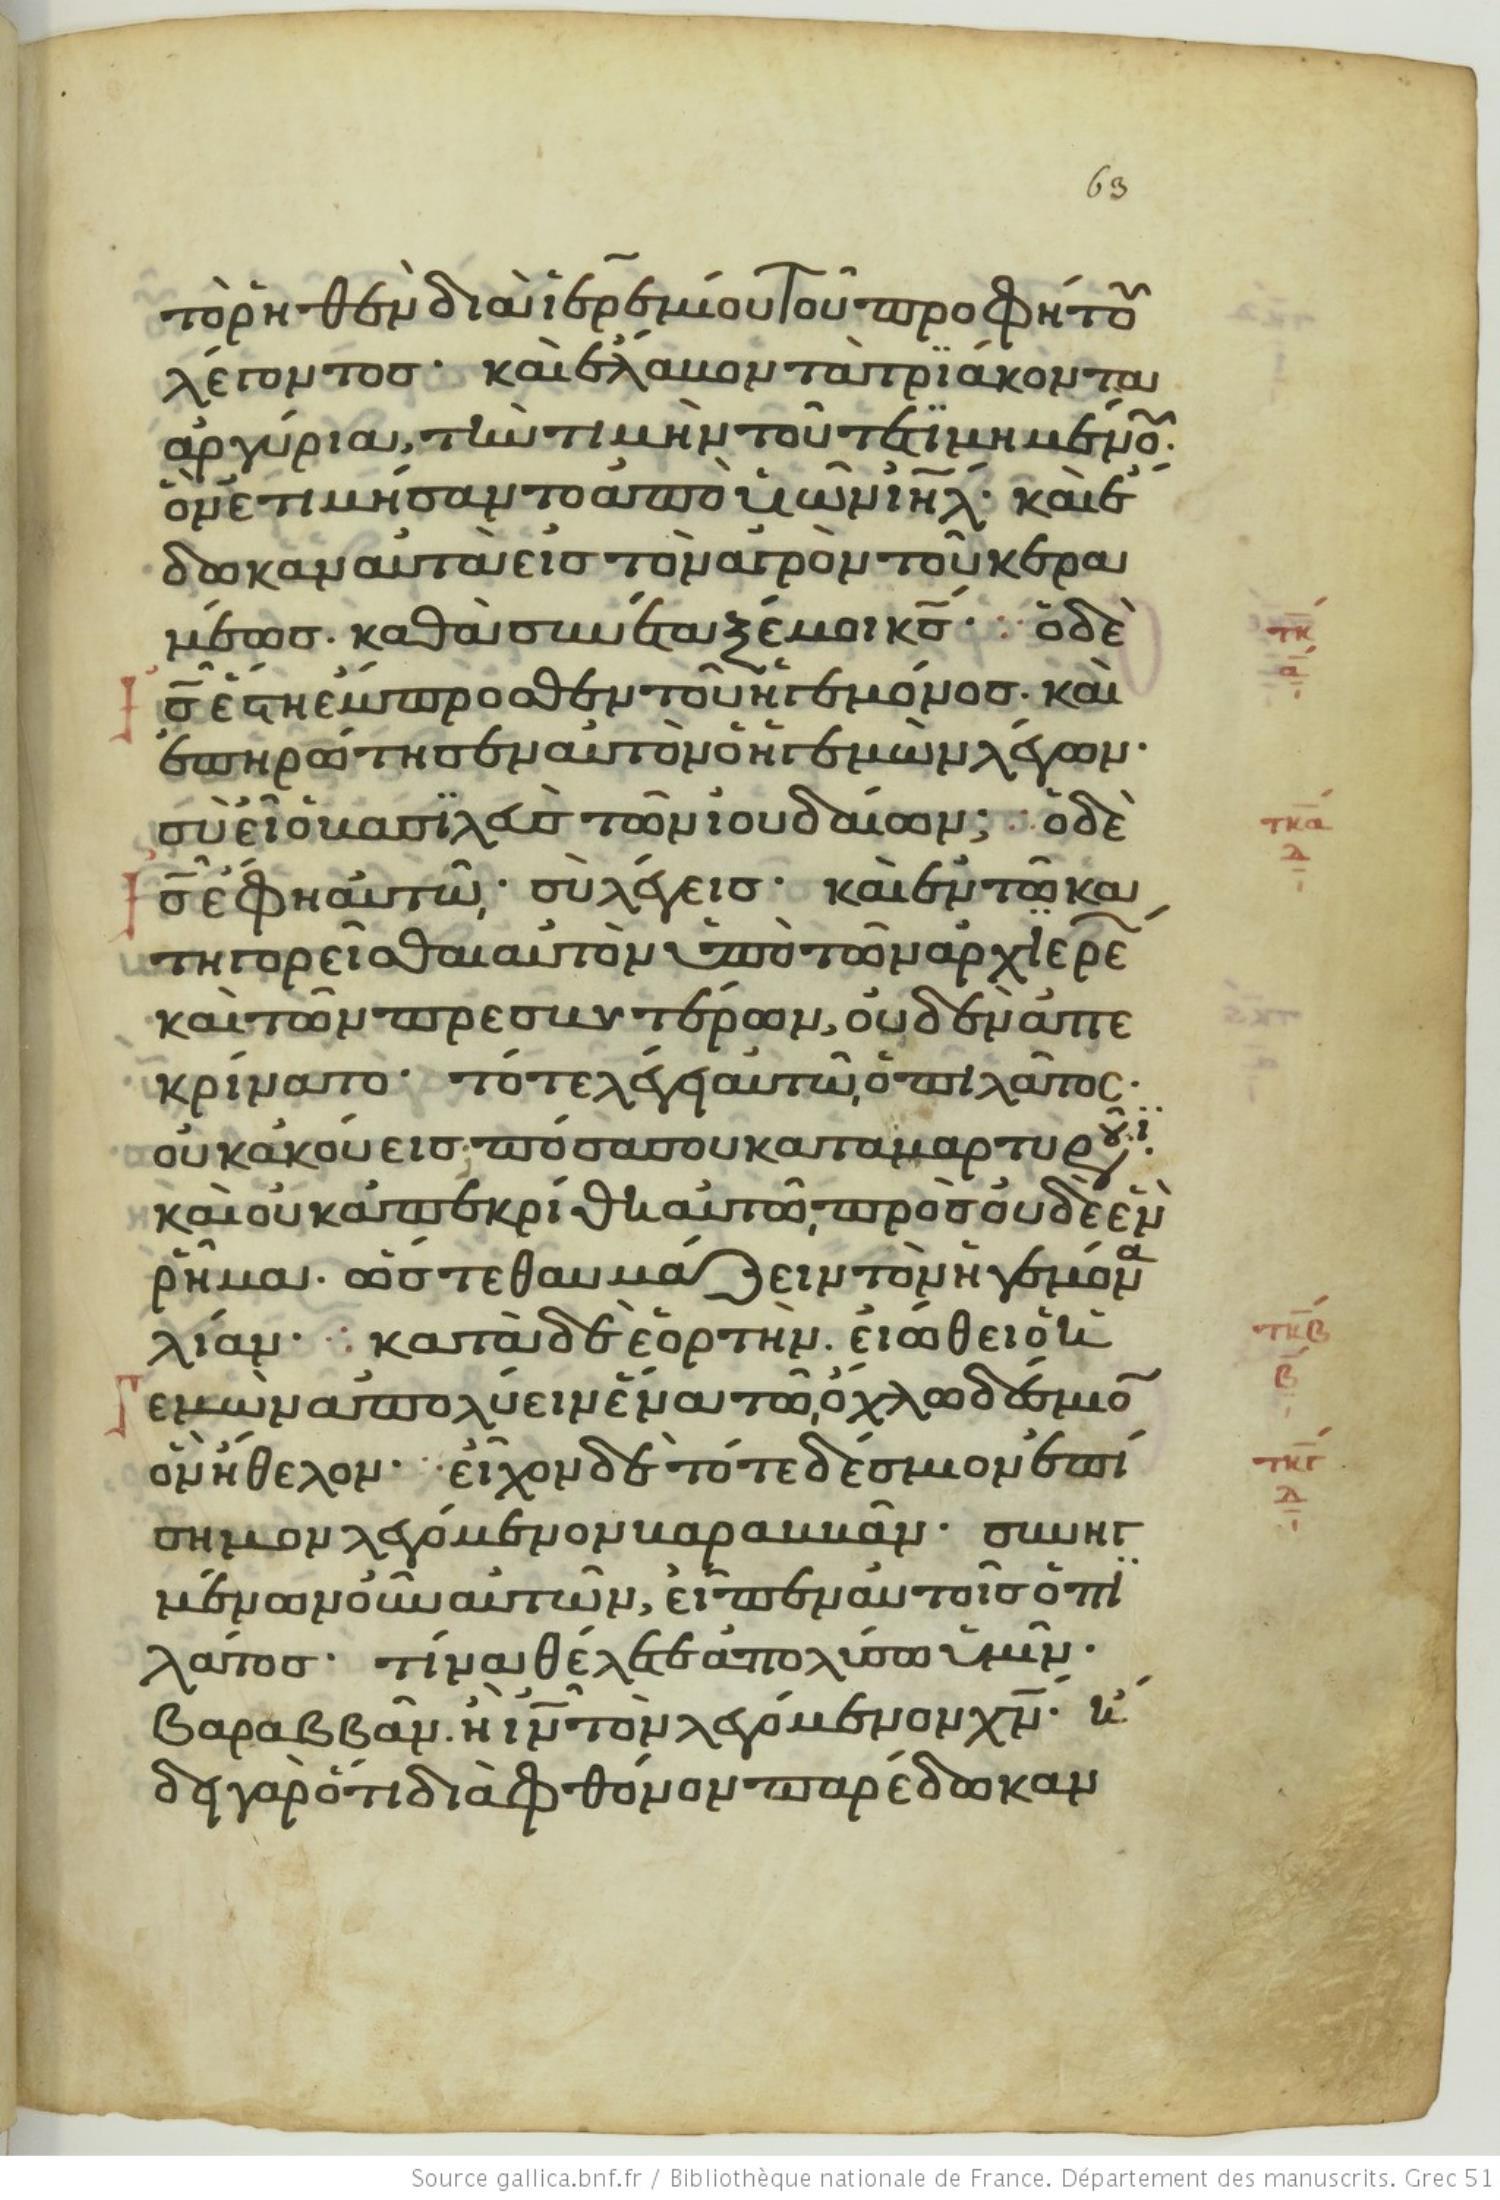 63
τὸ ῥηθὲν διὰ ἱερεμίου τοῦ προφήτου
λέγοντος· καὶ ἔλαβον τὰ τριάκοντα
ἀργύρια, τὴν τιμὴν τοῦ τετιμημένου·
ὃν ἐτιμήσαντο ἀπὸ υἱῶν ιηλ· καὶ ἔ
δωκαν αὐτὰ εἰς τὸν ἀγρὸν τοῦ κερα
μέως· καθὰ συνέταξέ μοι κς· ὁ δὲ
ις ἔστη ἔμπροσθεν τοῦ ἡγεμόνος· καὶ
ἐπηρώτησεν αὐτὸν ὁ ἡγεμὼν λέγων·
σὺ εἶ ὁ βασιλεὺς τῶν ἰουδαίων; ὁ δὲ
ις ἔφη αὐτῷ· σὺ λέγεις· καὶ ἐν τῷ κα
τηγορεῖσθαι αὐτὸν ὑπὸ τῶν ἀρχιερέ
καὶ τῶν πρεσβυτέρων, οὐδὲν ἀπε
κρίνατο· τότε λέγει αὐτῷ ὁ πιλᾶτος·
οὐκ ἀκούεις πόσα σου καταμαρτυροῦσι·
καὶ οὐκ ἀπεκρίθη αὐτῷ πρὸς οὐδὲ ἓν
ῥῆμα· ὥστε θαυμάζειν τὸν ἡγεμόνα
λίαν· κατὰ δὲ ἑορτὴν· εἰώθει ὁ ἡ
γεμὼν ἀπολύειν ἕνα τῷ ὄχλῳ δέσμιο
ὃν ἤθελον· εἶχον δὲ τότε δέσμιον ἐπί
σημον λεγόμενον βαραββᾶν· συνηγ
μένων οὖν αὐτῶν, εἶπεν αὐτοῖς ὁ πι
λάτος· τίνα θέλετε ἀπολύσω ὑμῖν·
βαραββᾶν· ἢ ιν τὸν λεγόμενον χν· ἤ
δει γὰρ ὅτι διὰ φθόνον παρέδωκαν
τκ
α
τκα
δ
τκβ
β
τκγ
δ
Source gallica.bnf.fr / Bibliothèque nationale de France. Département des manuscrits. Grec 51